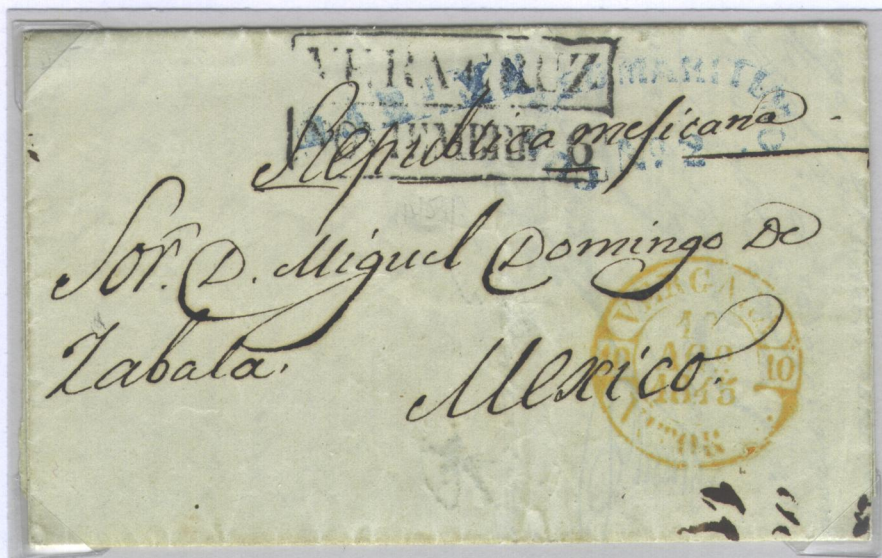 VERACRUZ
NOVIEMBRE 8
MARITIMO
Republica mesicana
Sor. D. Miguel Domingo De
Zabala.
Mexico.
VERGARA
AGO
1845
10
10
VITOR